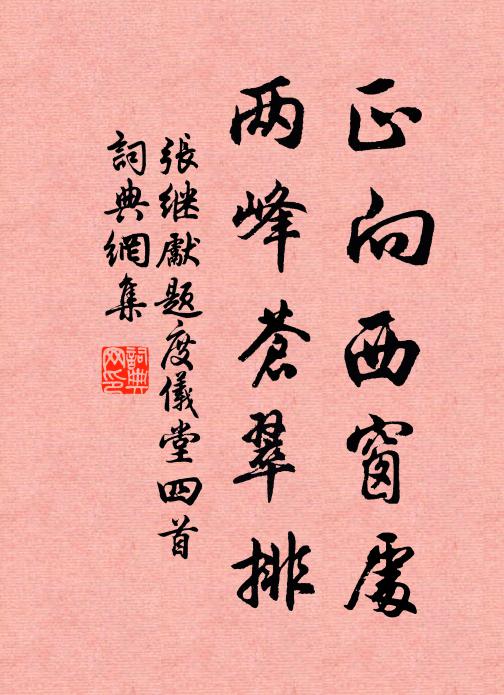 正向西窗處
两峰蒼翠排
張继獻題度儀堂四首
詞典網集
詞典
网印